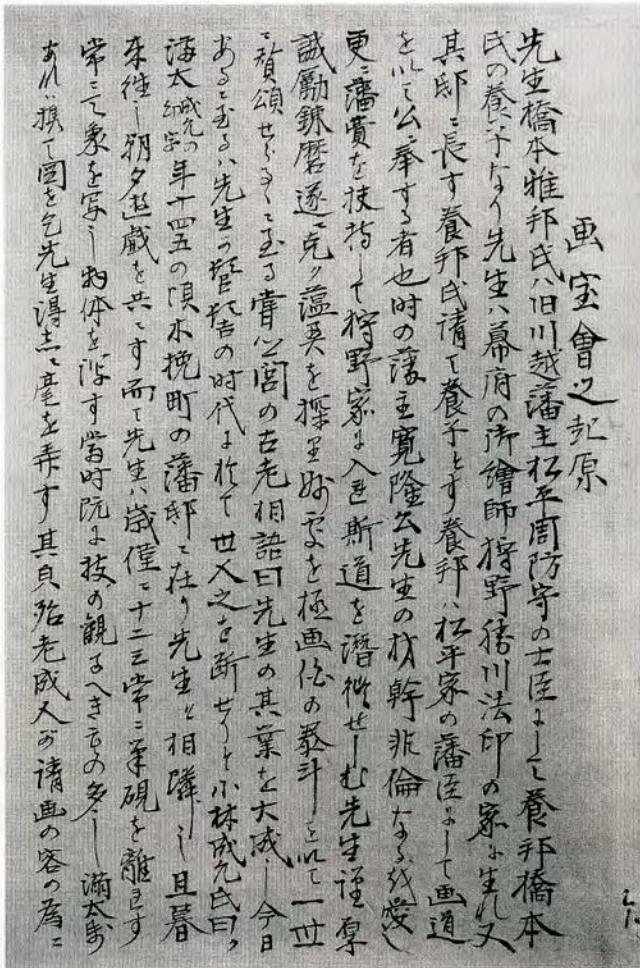 画宝會之起原
先生橋本雅邦氏ハ旧川越藩主松平周防守の士臣にして養邦橋本
氏の養子なり先生ハ幕府の御繪師狩野勝川法印の家に生れ又
其邸に長す養邦氏請て養子とす養邦ハ松平家の藩臣にして画道
を以て公に奉する者也時の藩主寛隆公先生の材幹非倫なるを愛し
更ニ藩費を扶持して狩野家に入れ斯道を潜修せしむ先生謹厚
誠勵錬磨遂に克ク薀奥を探り妙霊を極画伯の泰斗を以て一世
に賛頌せらるゝに至る嘗公宮の古老相語曰先生の其業を大成し今日
あるに至るハ先生の齠齢の时代に於て世人之を断せりと小林成允氏曰ク
満太成允の幼字年十四五の頃木挽町の藩邸に在り先生と相隣し旦暮
来往し朝夕遊戯を共にす而て先生ハ歳僅に十二三常ニ筆硯を離れす
常に象を写し物体を作す當时既に技の観るへきもの多し満太
あれハ携て図を乞先生得意に毫を弄す其貞殆老成人の請画の客の為に